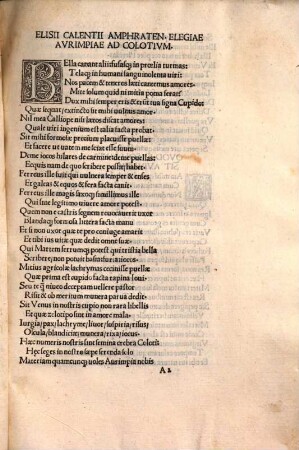 ELISII CALENTII AMPHRATEN. ELEGIAE
AVRIMPIAE AD COLOTIVM.
BElla canant alii fusasq; in prœliis turmas:
Telaq; in humani sanguinolenta uiri:
Nos pueros & teneros læti canemus amores:
Mite solum quid ni mitia poma ferat?
Dux mihi semper eris & erit tua signa Cupido
Quæ sequar, extincto sit mihi uulnus amor.
Nil mea Calliope nisi latos discit amores:
Quale uiri ingenium est talia facta probat.
Sit mihi formosæ premium placuisse puellæ:
Et facere ut uate me leta esse sinant.
Deme iocos hilares de carmine deme puellas:
Et quis erit de quo scribere possit: habet.
Ferreus ille fuit qui uulnera semper & enses
Et galeas & equos & fera facta canit.
Ferreus ille magis saxoq; simillimus illi
Qui sine legitimo uiuere amore potest.
Quem non e castris segnem reuocauerit uxor
Blandaq; formosa littera facta manu
Et si non uxor quæ te pro coniuge amarit
Et tibi ius uitæ quæ dedit omne suæ.
Qui Martem ferrumq; potest qui tristia bella
Scribere; non potuit basia ferre
Mitius agricolæ lachrymas cecinisse puellæ
Quæ prima est cupido facta rapina Ioui.
Seu te q; niueo decepam uellere pastor
Risit & ob meritum munera parua dedit.
Sit Venus in nostris cupido non rara libellis
Et quæ zelotipo sunt in amore mala.
Iurgia; pax; lachrymæ; liuor; suspiria; risus;
Oscula; blandiciæ; munera; rixa; iocus.
Hæc numeris nostris sunt semina crebra Coloti
Hęc seges in nostro sæpe serenda solo
Materiam quamcunq; uoles Aurimpia nobis
A2